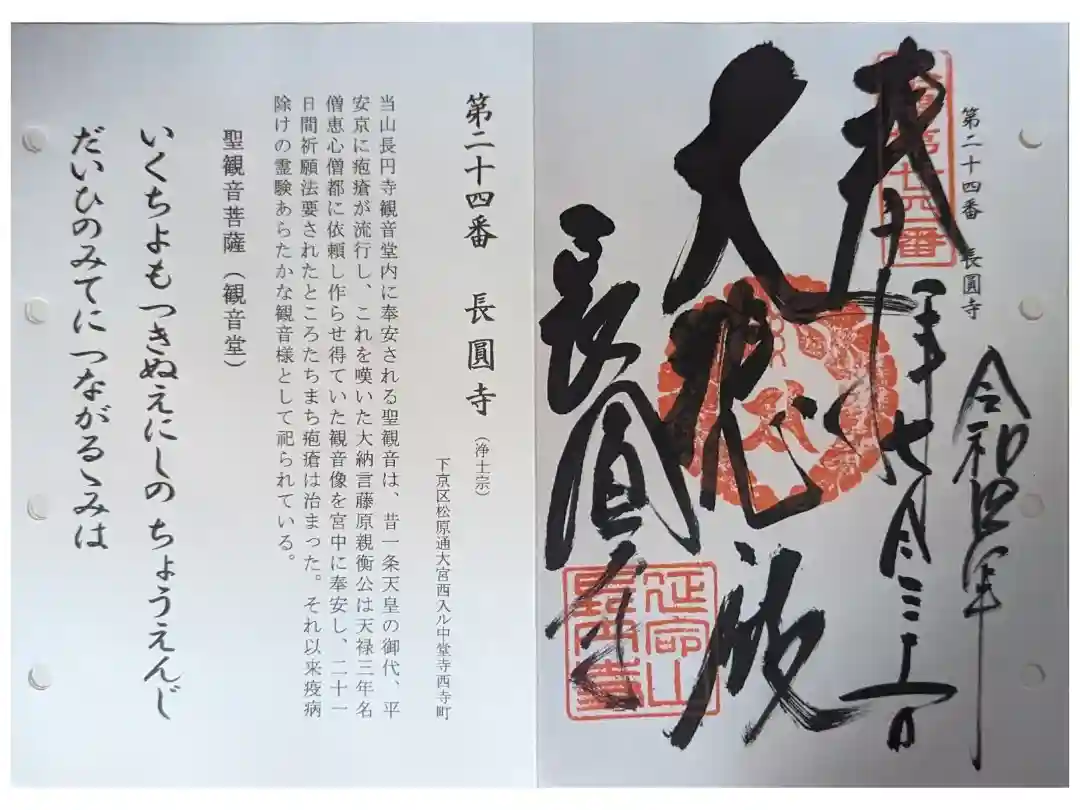 第二十四番 長圓寺
令和四年
七月三十一日
奉拝
第廿四番
大悲殿
長圓寺
延命山
長円寺
第二十四番 長圓寺（浄土宗）
下京区松原通大宮西入ル中堂寺西寺町
当山長円寺観音堂内に奉安される聖観音は、昔一条天皇の御代、平
安京に疱瘡が流行し、これを嘆いた大納言藤原親衡公は天禄三年名
僧恵心僧都に依頼し作らせ得ていた観音像を宮中に奉安し、二十一
日間祈願法要されたところたちまち疱瘡は治まった。それ以来疫病
除けの霊験あらたかな観音様として祀られている。
聖観音菩薩（観音堂）
いくちよもつきぬえにしの ちょうえんじ
だいひのみてにつながるゝみは